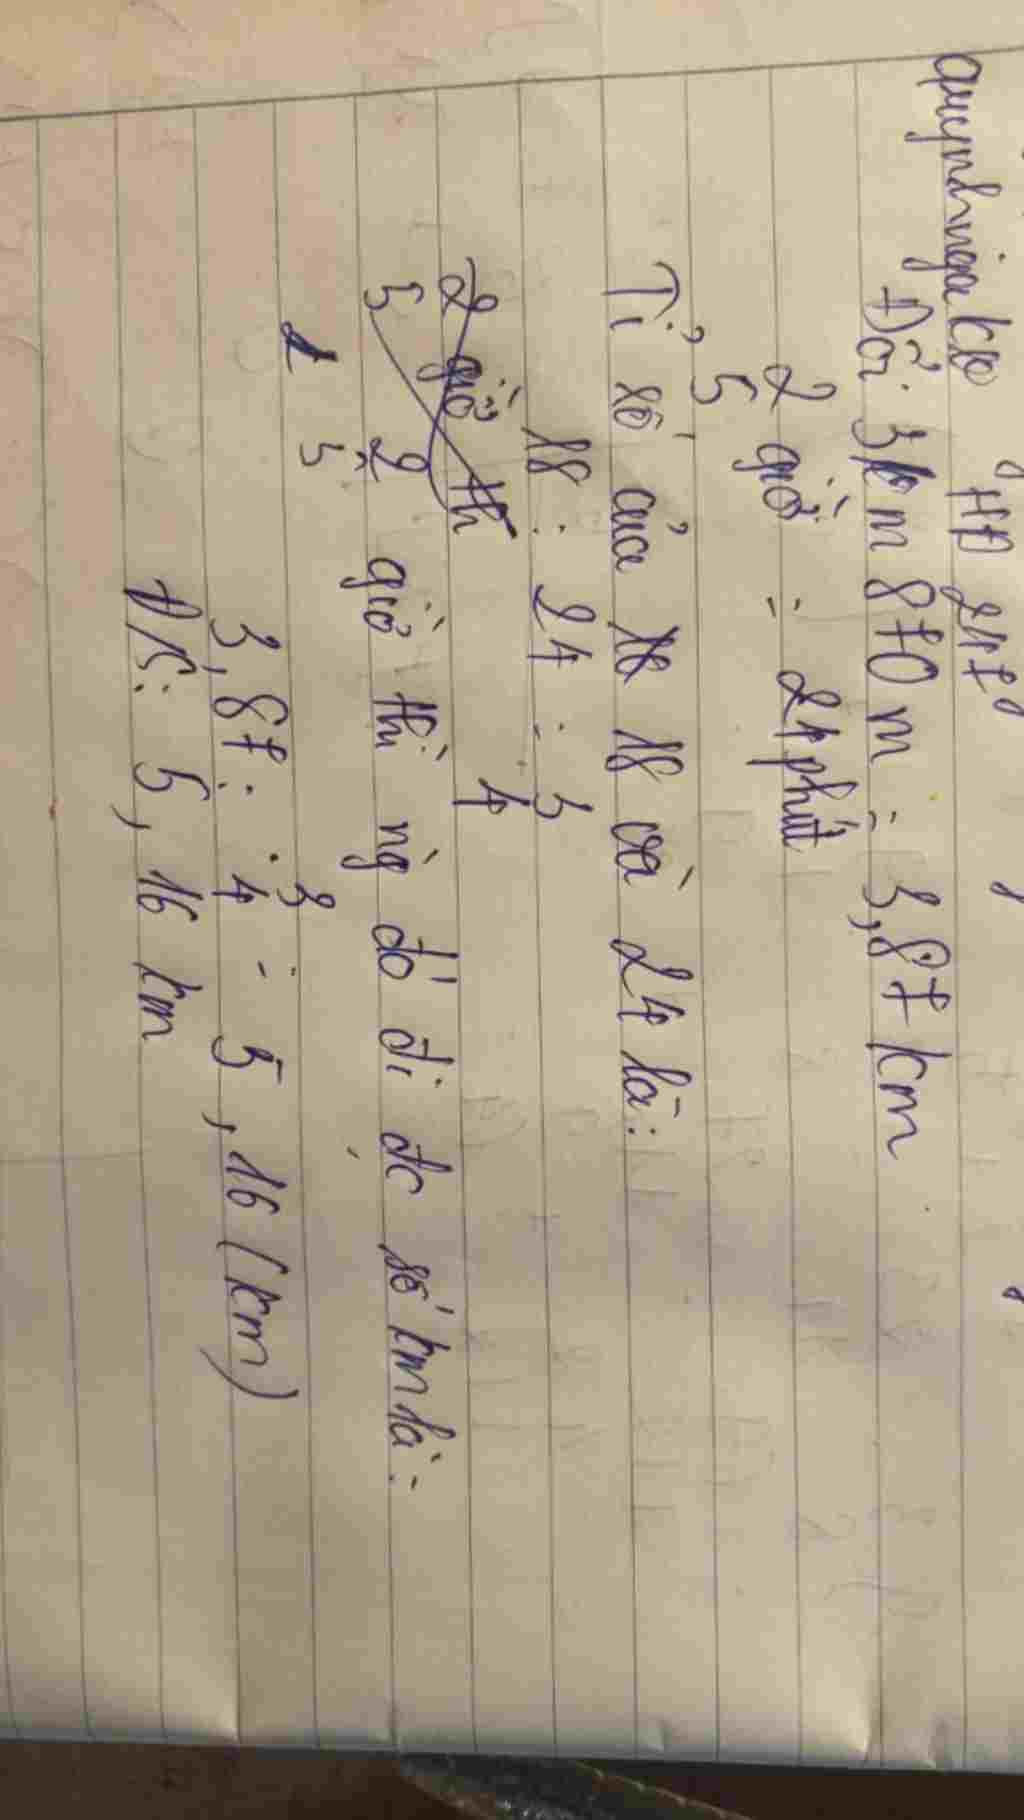 quynhnga kw HĐ 247
Đổi: 3km 870 m = 3,87 km
2/5 giờ = 24 phút
Tỉ số của 18 và 24 là:
18 : 24 = 3/4
2/5 giờ th
2/5 giờ thì ng đó đi đc số km là:
3,87 : 3/4 = 5,16 (km)
Đ/S: 5,16 km